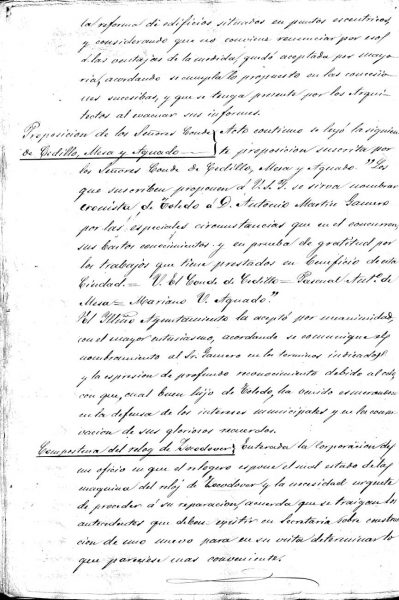 la reforma de edificios situados en puntos escentricos,
y considerando que no conviene renunciar por eso
á las ventajas de la medida, quedó aceptada por mayo-
ria, acordando se cumpla lo propuesto en las concesio-
nes sucesibas, y que se tenga presente por los Arqui-
tectos al evacuar sus informes.
Proposicion de los Señores Conde } Acto continuo se leyó la siguien-
de Cedillo, Mesa y Aguado te proposicion suscrita por
los Señores Conde de Cedillo, Mesa y Aguado "Los
que suscriben proponen á V.S.I. se sirva nombrar
cronista de Toledo á D. Antonio Martin Gamero
por las especiales circunstancias que en el concurren,
sus bastos conocimientos y en prueba de gratitud por
los trabajos que tiene prestados en beneficio de esta
Ciudad.= V. El Conde de Cedillo= Pascual Antº. de
Mesa= Mariano V. Aguado."
El Illmo Ayuntamiento la aceptó por unanimidad,
con el mayor entusiasmo, acordando se comunique el
nombramiento al Sr. Gamero en los terminos indicados
y la espresion de profundo reconocimiento debido al celo
con que, cual buen hijo de Toledo, ha omido esmerandose
en la defensa de los intereses municipales y en la conser-
vacion de sus gloriosos recuerdos.
Compostura del reloj de Zocodover } Enterada la Corporacion de
un oficio en que el relogero espone el mal estado de la
maquina del reloj de Zocodover y la necesidad urgente
de proceder á su reparacion, acuerda que se traigan los
antecedentes que deben existir en Secretaria sobre construc-
cion de uno nuevo para en su vista determinar lo
que pareciese mas conveniente.